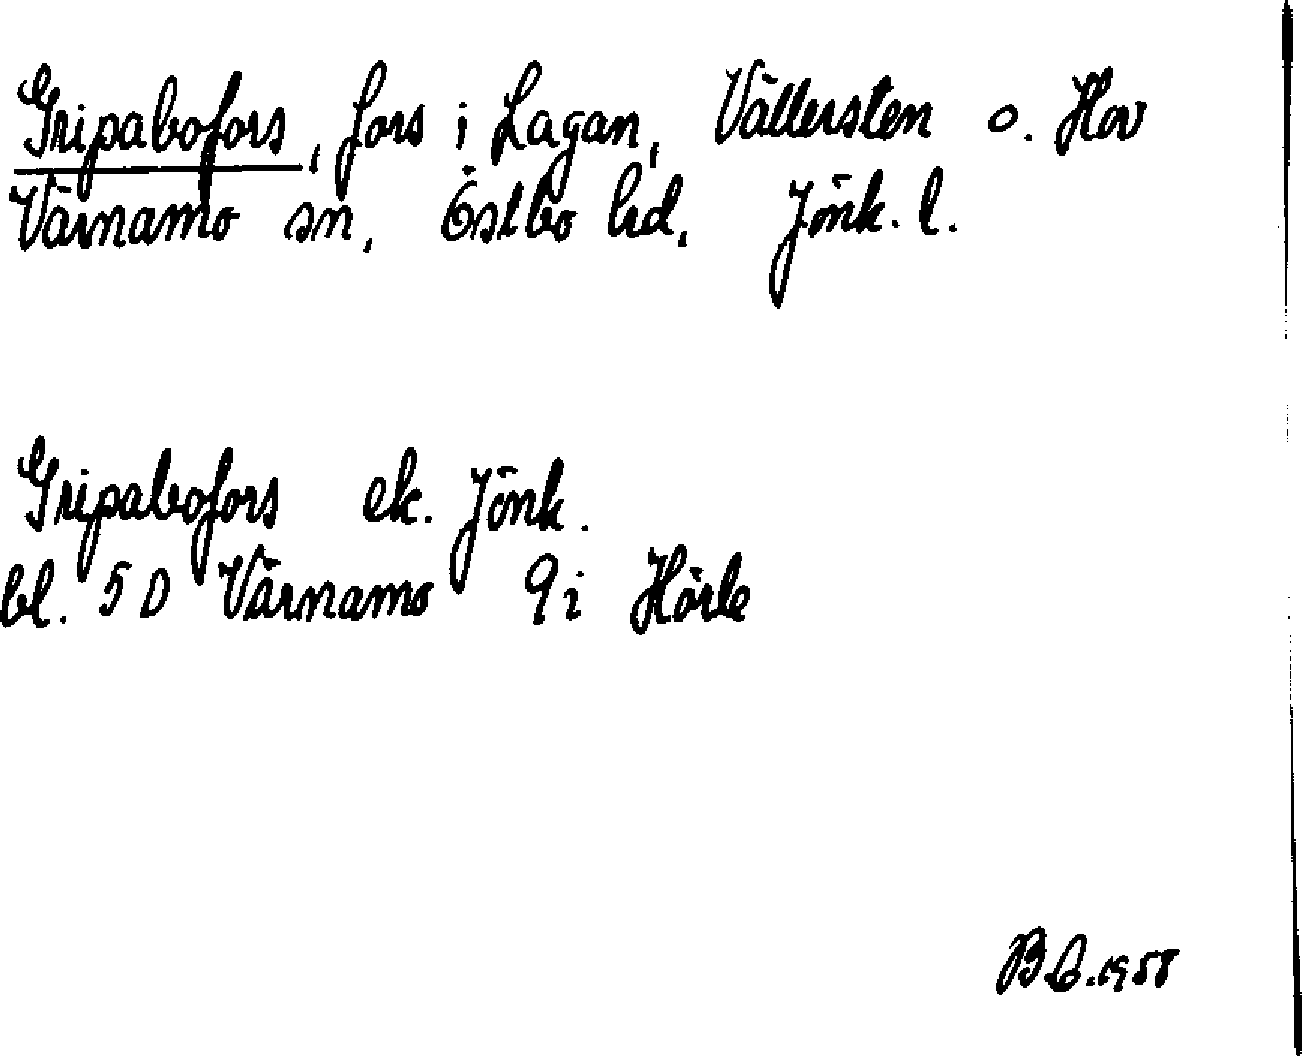 Gripabofors, fors i Lagan, Vällersten o. Hov
Värnamo sn, Östbo hd, Jönk. l.
Gripabofors ek. Jönk.
bl. 5 D Värnamo 9 i Hörle
B L. 1958